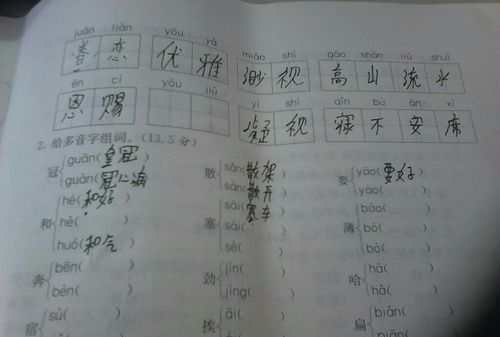 juàn liàn yōu yǎ miǎo shì gāo shān liú shuǐ
眷 恋 优 雅 渺 视 高 山 流 水
ēn cì yōu jiǔ yí shì qǐn bù ān xí
恩 赐 疑 视 寝 不 安 席
2. 给多音字组词。(13.5 分)
冠 guān(皇冠) 散 sǎn(散架) 要 yào(要好)
guàn(冠心病) sàn(散开) yāo( )
和 hé(和好) 塞 sāi(塞车) 薄 báo( )
hè( ) sài( ) bó( )
huó(和气) sè( ) bò( )
奔 bēn( ) 劲 jìn( ) 哈 hā( )
bèn( ) jìng( ) hǎ( )
宿 sù( ) 挨 āi( ) 扁 biǎn( )
piān(